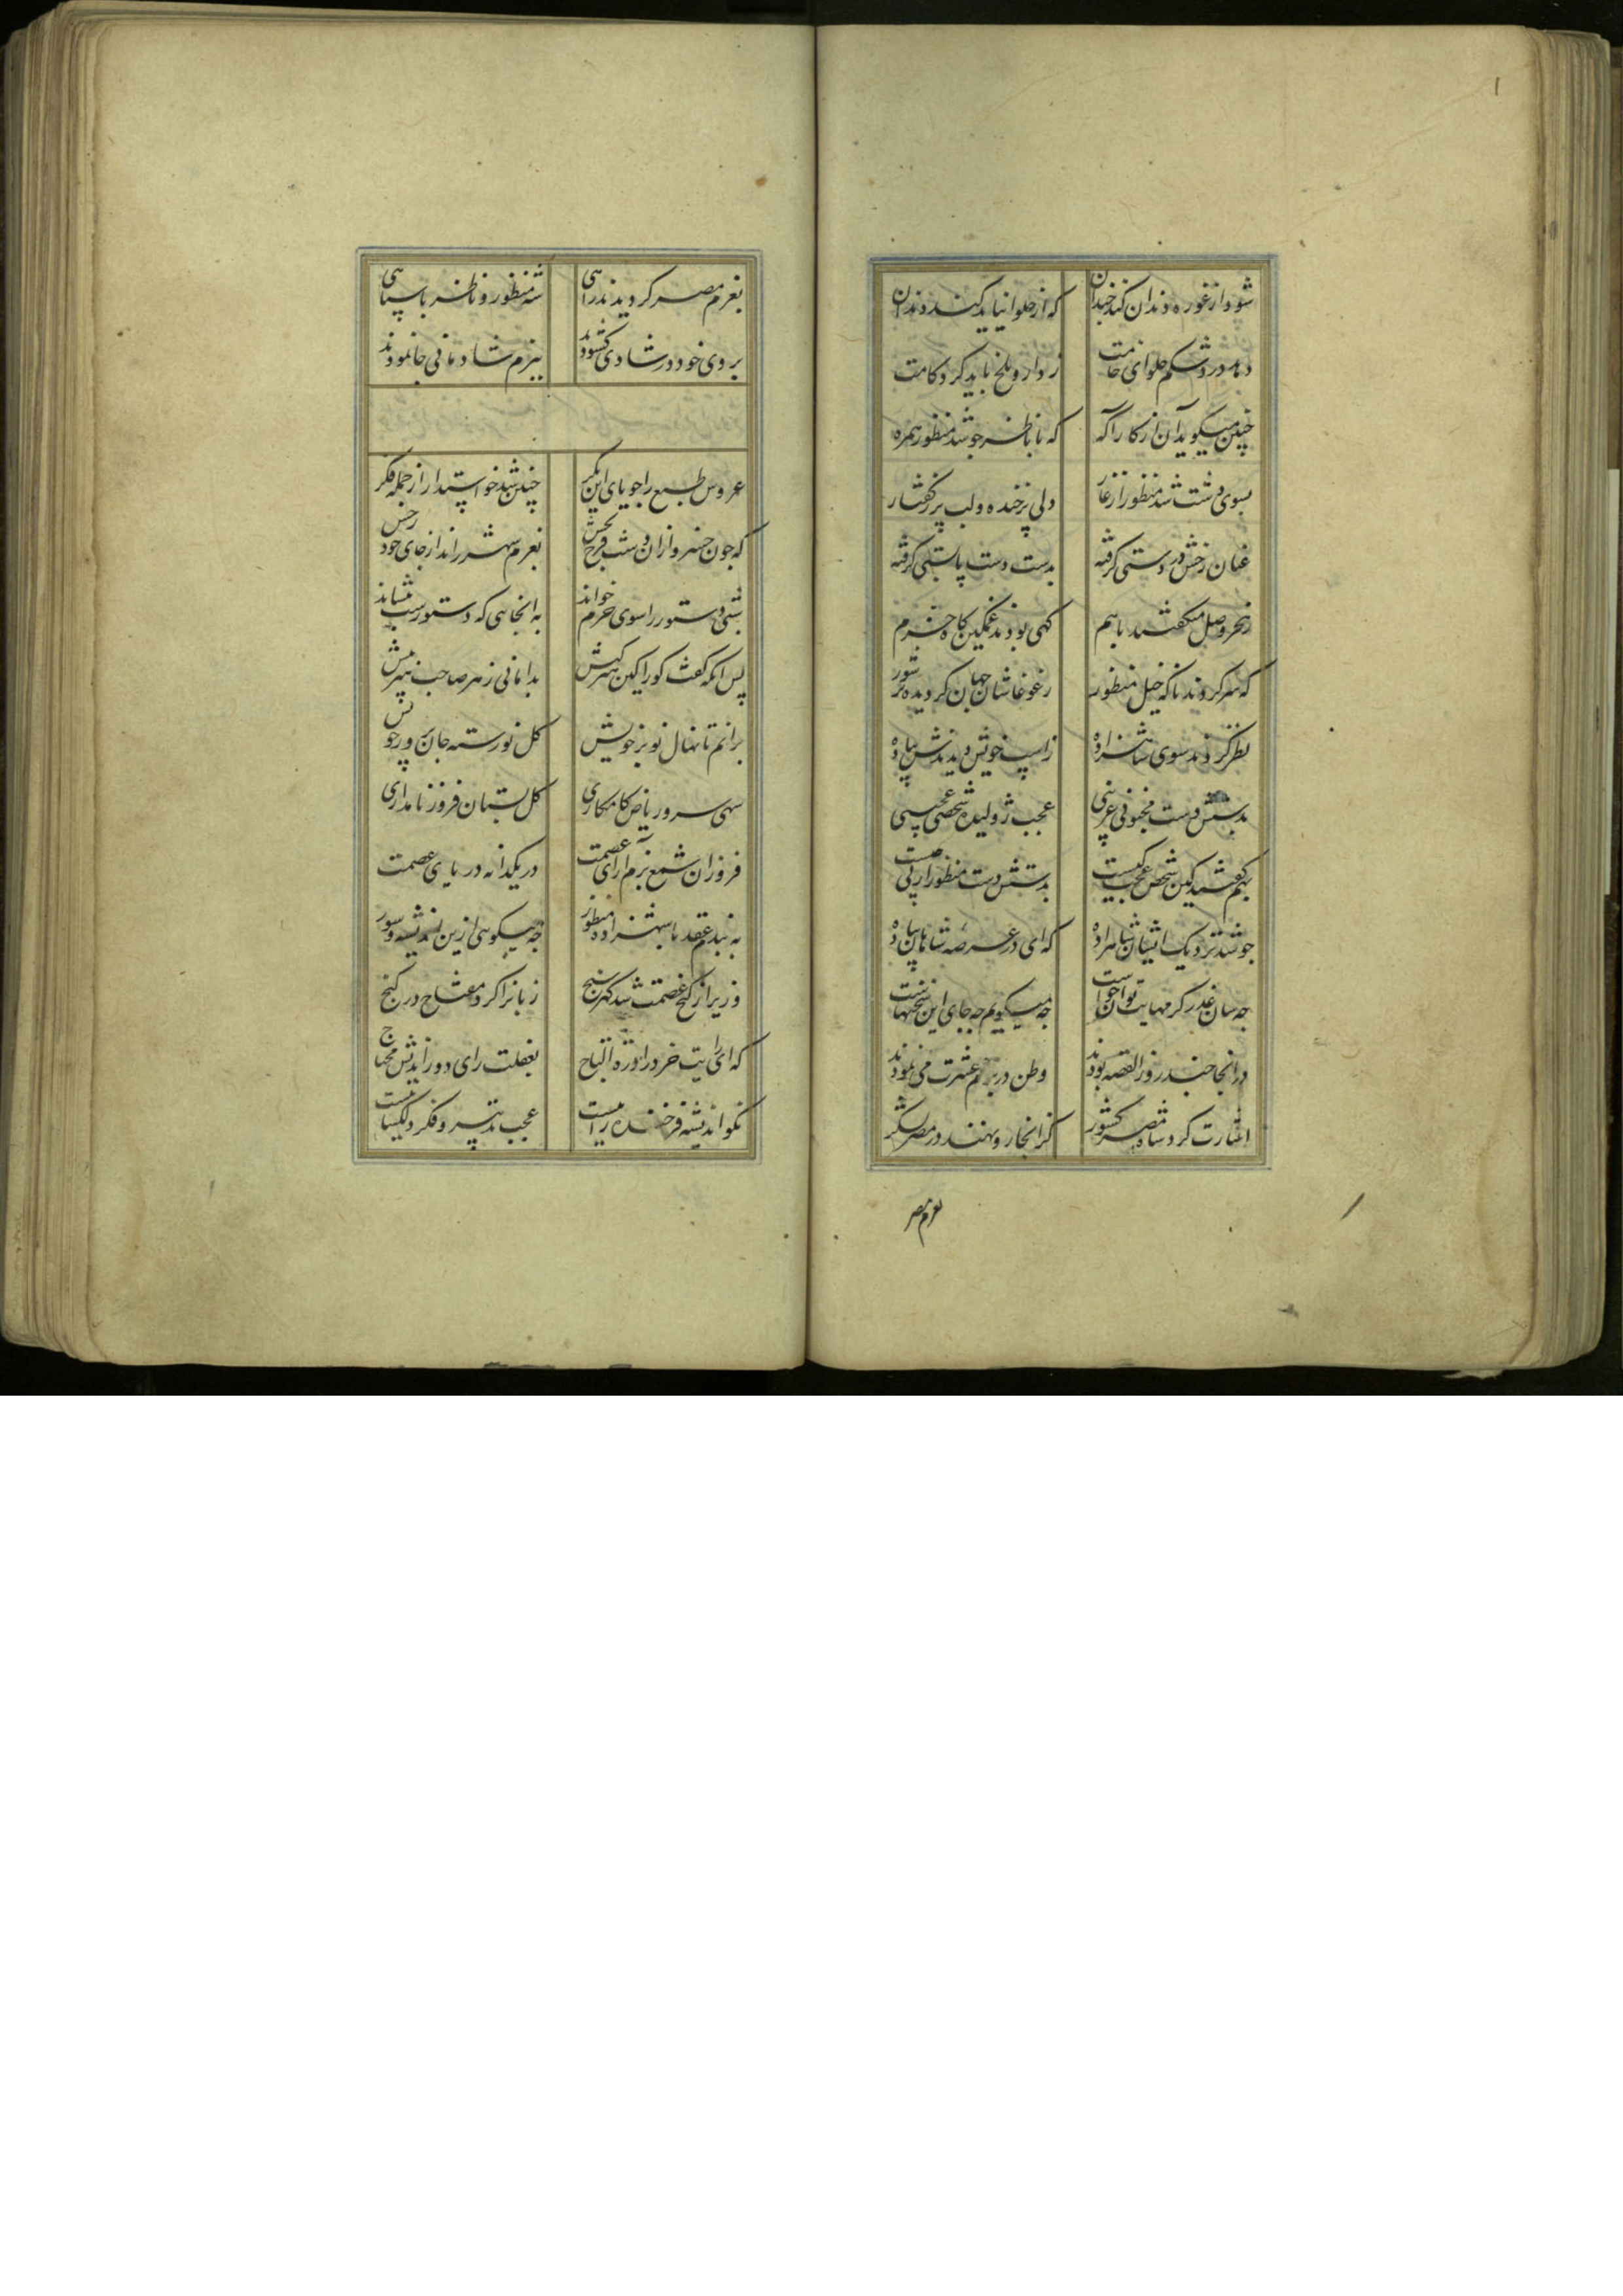 شود از غوره دندان کند خندان که از حلوا نیاید کند دندان
دهد درد شکم حلوای خامت ز دارو تلخ باید کرد کامت
چنین میگوید آن از کار آگه که با ناظر چو شد منظور همره
بسوی دشت شد منظور از غار دلی پرخنده و لب پر ز گفتار
عنان رخش در دستی گرفته بدست دست پا بستی گرفته
ز هجر و وصل میگفتند با هم گهی بودند غمگین گاه خرم
که سر کردند ناگه خیل منظور ز غوغاشان جهان گردیده پر شور
نظر کردند سوی شاهزاده ز اسب خویش دیدندش پیاده
بدستش دست مجنونی غریبی عجب ژولیده شخصی عجیبی
بهم گفتند کین شخص عجب کیست بدستش دست منظور از پی چیست
چو شد نزدیک ایشان شاهزاده که ای در عرصه شاهان پیاده
چه سان عذر کرمهایت توان خواست چه میگویم چه جای این سخنهاست
در آنجا چند روز القصه بودند وطن در بزم عشرت می نمودند
اشارت کرد شاه مصر کشور کز آنجا رو نهند در مصر لشکر
بعزم مصر
بعزم مصر گردیدند راهی شه منظور و ناظر با سپاهی
بروی خود در شادی گشودند ببزم شادمانی جا نمودند
عروس طبع را جویای این بکر چنین شد خواستار از حجله فکر
که چون خسرو از آن دشت فرح بخش بعزم شهر راند از جای خود رخش
شبی دستور را سوی حرم خواند به آنجایی که دستور است بنشاند
پس آنگه گفت کورا کین هنرکیش بدانائی ز هر صاحب هنر بیش
برآنم تا نهال نوبر خویش گل نورسته جان پرور خویش
سهی سرو ریاض کامکاری گل بستان فروز نامداری
فروزان شمع بزم آرای عصمت در یکدانه دریای عصمت
به بندم عقد با شهزاده منظور چه میگویی ازین اندیشه دستور
وزیر از گنج عصمت شد گهر سنج زبانرا کرد مفتاح در گنج
که ای رایت خرد را درة التاج بعقلت رای دوراندیش محتاج
نکو اندیشه فرخنده رائیست عجب تدبیر و فکر دلگشائیست